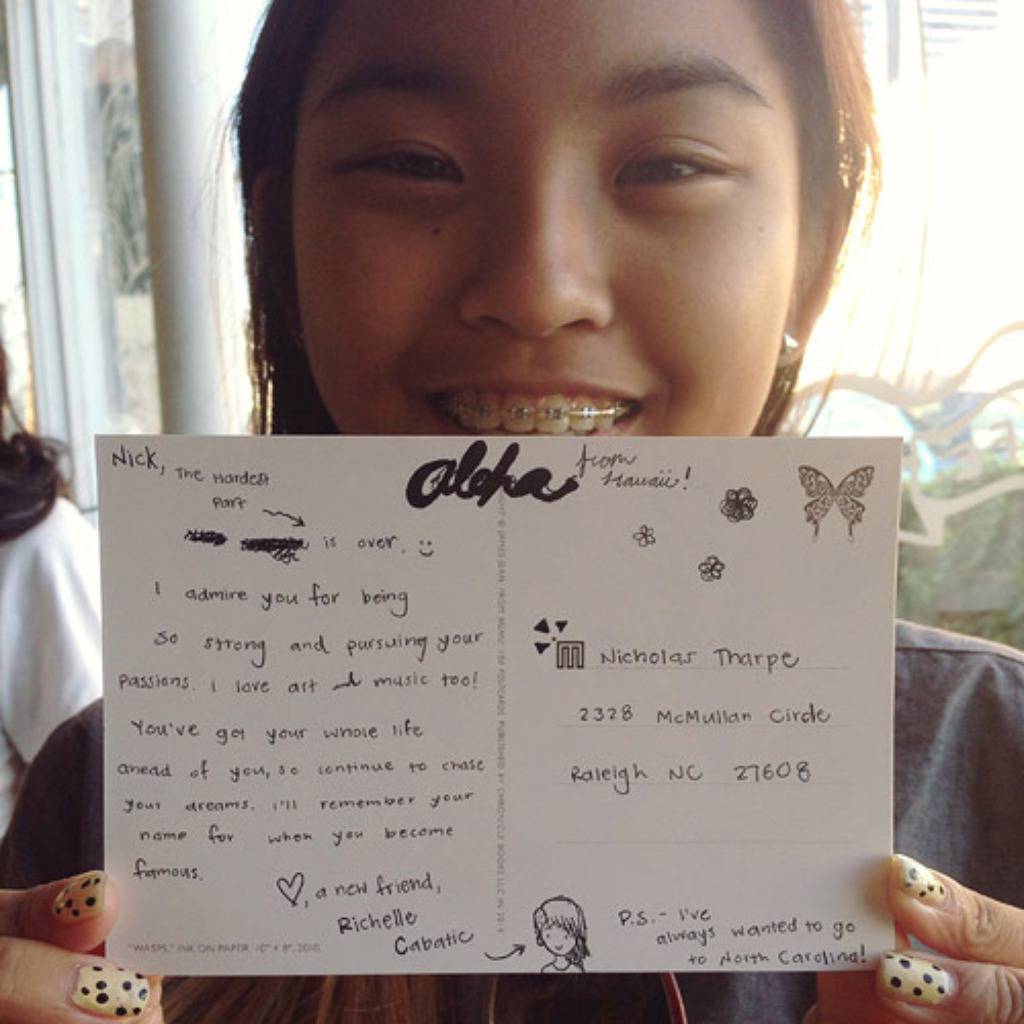 Nick, The Hardest
Part
is over. :)
I admire you for being
so strong and pursuing your
passions. I love art and music too!
You've got your whole life
ahead of you, so continue to chase
your dreams. I'll remember your
name for when you become
famous.
♡, a new friend,
Richelle
Cabatic
"WASPS," INK ON PAPER
aloha from
Hawaii!
Nicholas Tharpe
2328 McMullan Circle
Raleigh NC 27608
P.S.- I've
always wanted to go
to North Carolina!